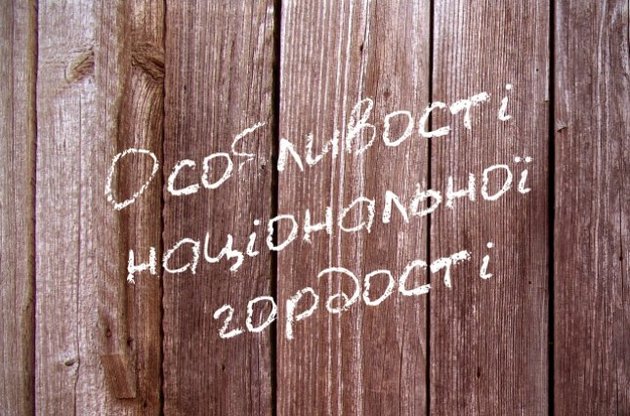 Особливості
національної
гордості